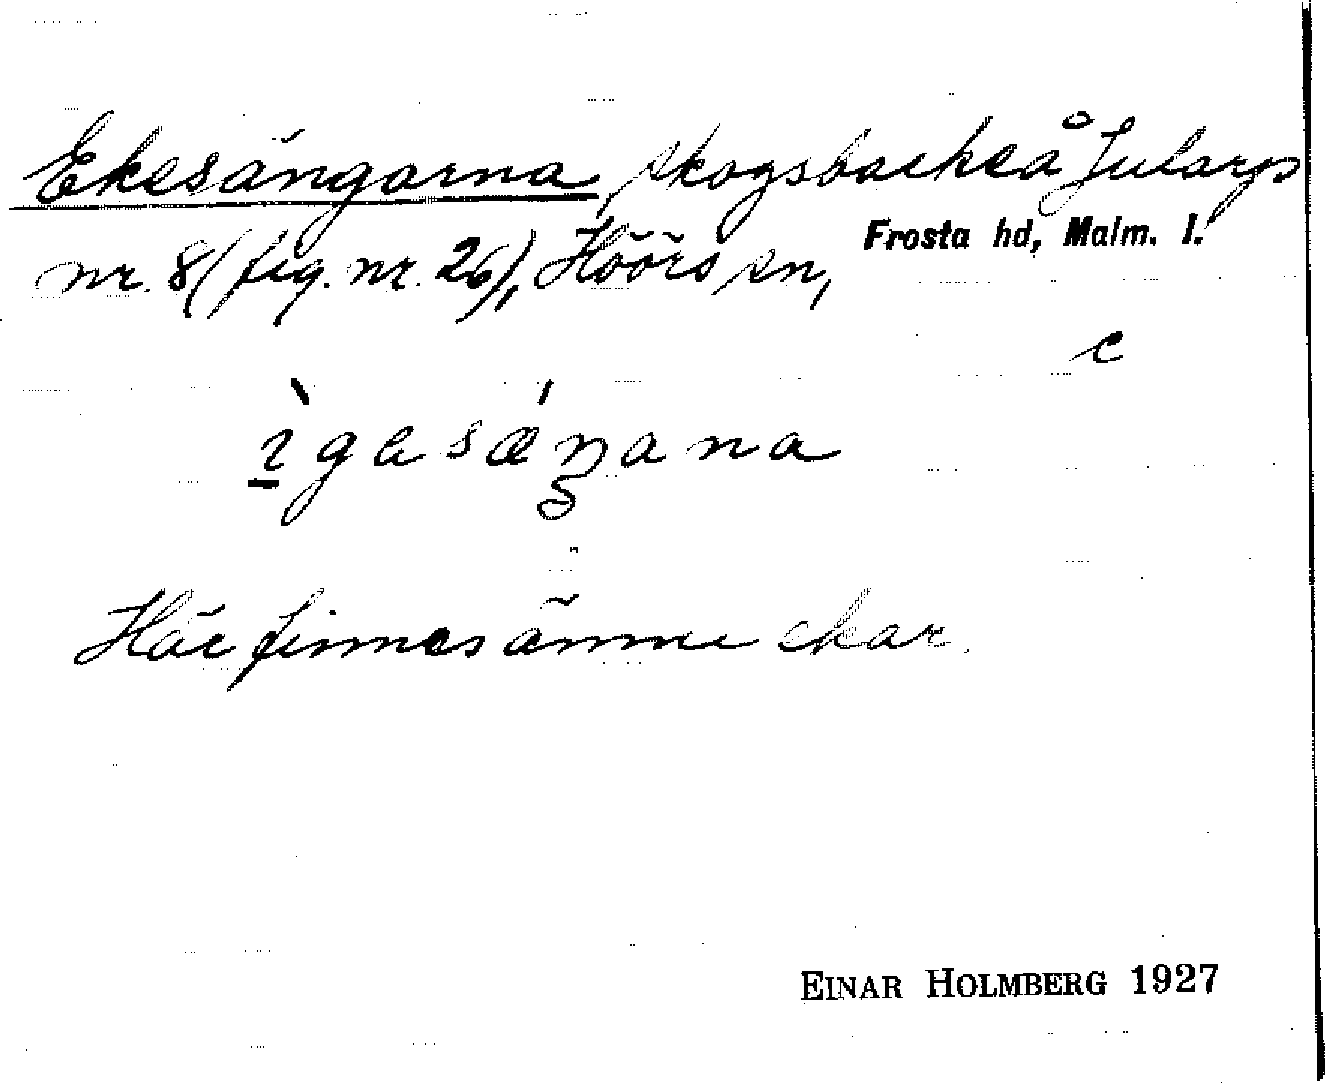 Ekesängarna, skogsbacke å Jularps
nr. 8 (fig. nr. 26), Höörs sn, Frosta hd, Malm. l.
c
Här finnes ännu ekar.
EINAR HOLMBERG 1927